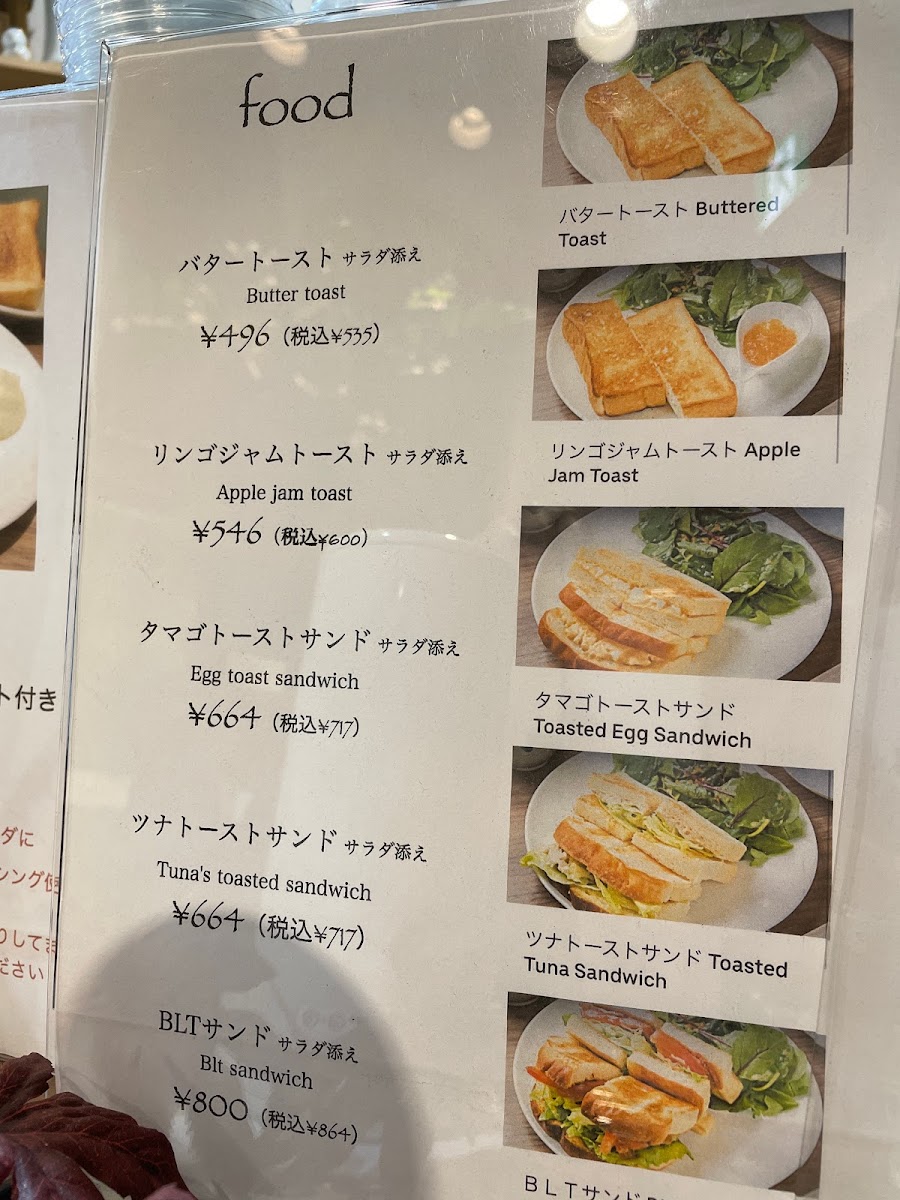 food
バタートースト サラダ添え
Butter toast
¥496 (税込¥535)
リンゴジャムトースト サラダ添え
Apple jam toast
¥546 (税込¥600)
タマゴトーストサンド サラダ添え
Egg toast sandwich
¥664 (税込¥717)
ツナトーストサンド サラダ添え
Tuna's toasted sandwich
¥664 (税込¥717)
BLTサンド サラダ添え
Blt sandwich
¥800 (税込¥864)
バタートースト Buttered
Toast
リンゴジャムトースト Apple
Jam Toast
タマゴトーストサンド
Toasted Egg Sandwich
ツナトーストサンド Toasted
Tuna Sandwich
ＢＬＴサンド
ト付き
ダに
シング使
りしてま
ださい